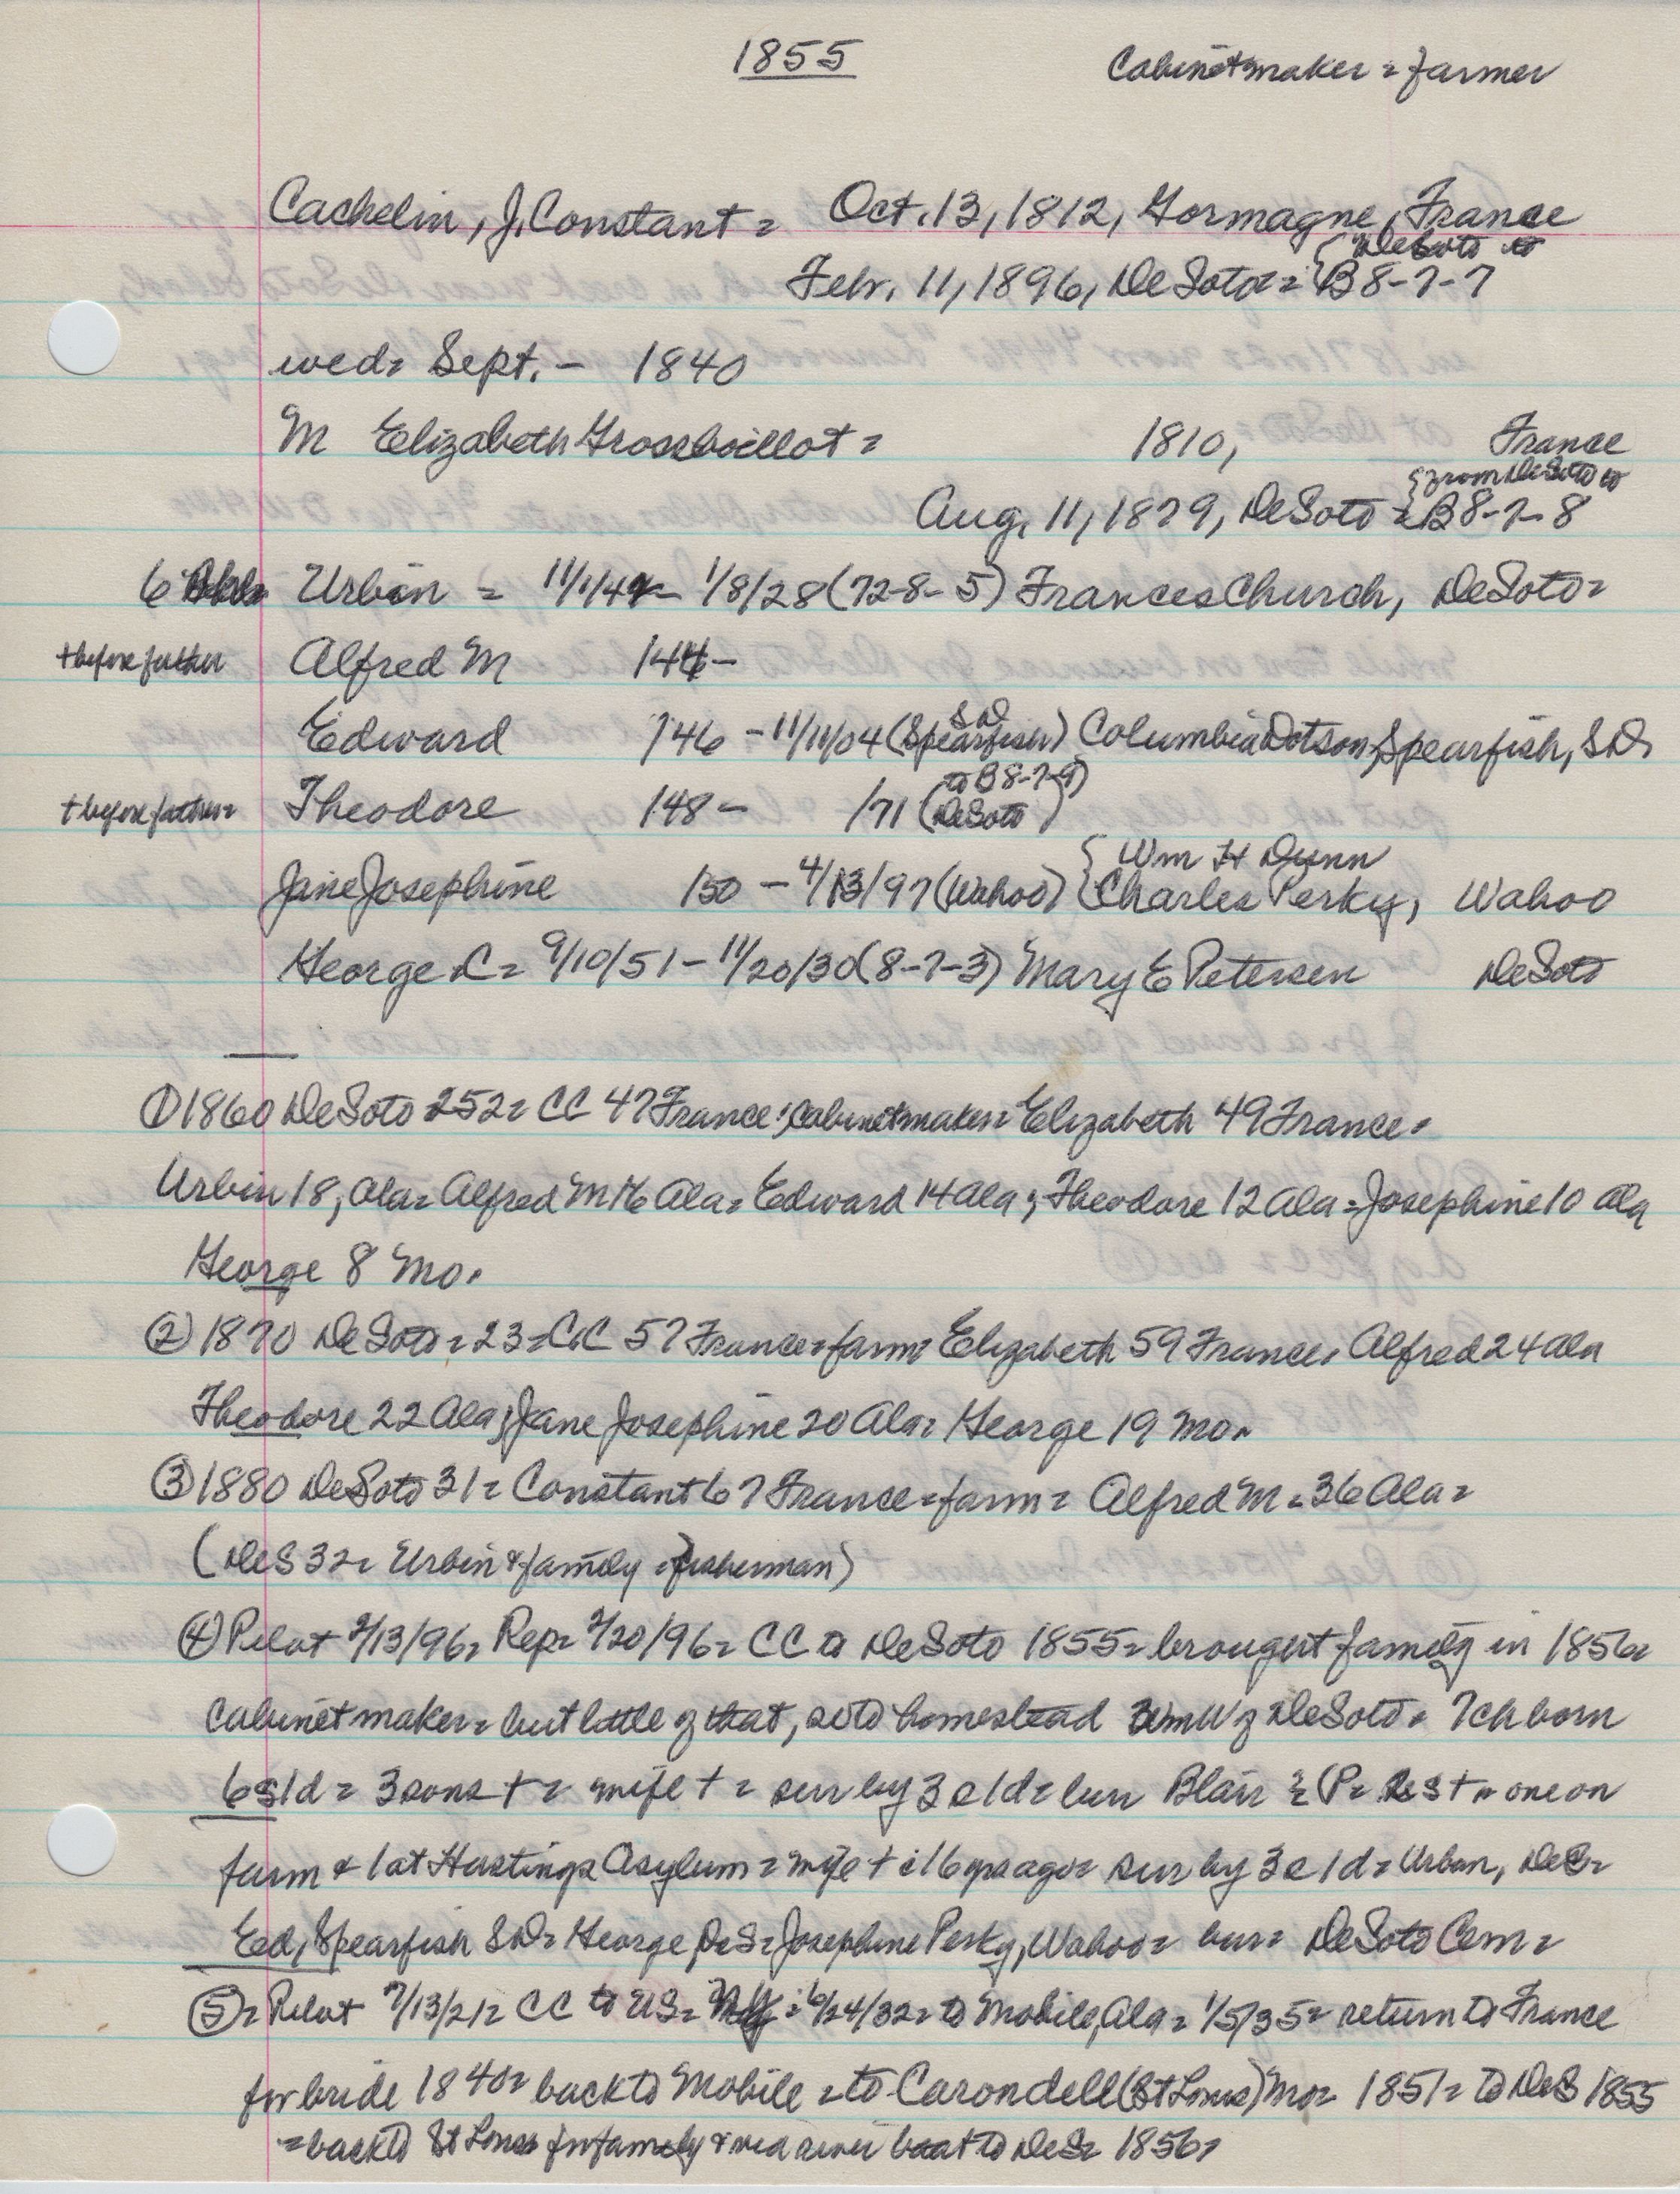 1855
Cabinetmaker = farmer
Cachelin, J. Constant = Oct. 13, 1812, Gormagne, France
{DeSoto to
Febr. 11, 1896, DeSoto = B8-7-7
wed = Sept. - 1840
M Elizabeth Grossboillot = 1810, France
{from DeSoto to
Aug. 11, 1879, DeSoto = B8-7-8
6 Urbin = 11/1/4 - 1/8/28 (72-8-5) Frances Church, DeSoto =
+ before father Alfred M 144 -
SD
Edward /46 - 11/11/04 (Spearfish) Columbia Dotson, Spearfish, SD
to B8-7-9)
+ before father = Theodore /48 - /71 (DeSoto)
{Wm H Dunn
Jane Josephine /50 - 4/13/97 (Wahoo) {Charles Perky, Wahoo
George C = 9/10/51 - 11/20/30 (8-7-3) Mary E Petersen DeSoto
① 1860 DeSoto 252 = CC 47 France; cabinetmaker = Elizabeth 49 France =
Urbin 18, Ala = Alfred M 16 Ala = Edward 14 Ala; Theodore 12 Ala = Josephine 10 Ala
George 8 Mo.
② 1870 DeSoto = 23 = C.C 57 France = farm = Elizabeth 59 France, Alfred 24 Ala
Theodore 22 Ala; Jane Josephine 20 Ala = George 19 Mo.
③ 1880 DeSoto 31 = Constant 67 France = farm = Alfred M = 36 Ala =
(DeS 32 = Urbin & family = fisherman)
④ Pilot 2/13/96 = Rep = 2/20/96 = CC to DeSoto 1855 = brought family in 1856 =
cabinet maker = but little of that, so to homestead W of DeSoto = 7 ch born
6s/d = 3 sons + = wife + = sur by 3 s/d = bur Blair = (P = + = one on
farm & 1 at Hastings Asylum = wife + c 16 yrs ago = sur by 3 s/d = Urban, DeS =
Ed, Spearfish SD = George, DeS = Josephine Perky, Wahoo = bur = DeSoto Cem =
⑤ = Pilot 7/13/21 = CC to US = NY = 6/24/32 = to Mobile, Ala = 1/5/35 = return to France
for bride 1840 = back to Mobile = to Carondell (St Louis) Mo = 1851 = to DeS 1855
= back to St Louis for family & via river boat to DeS = 1856 =